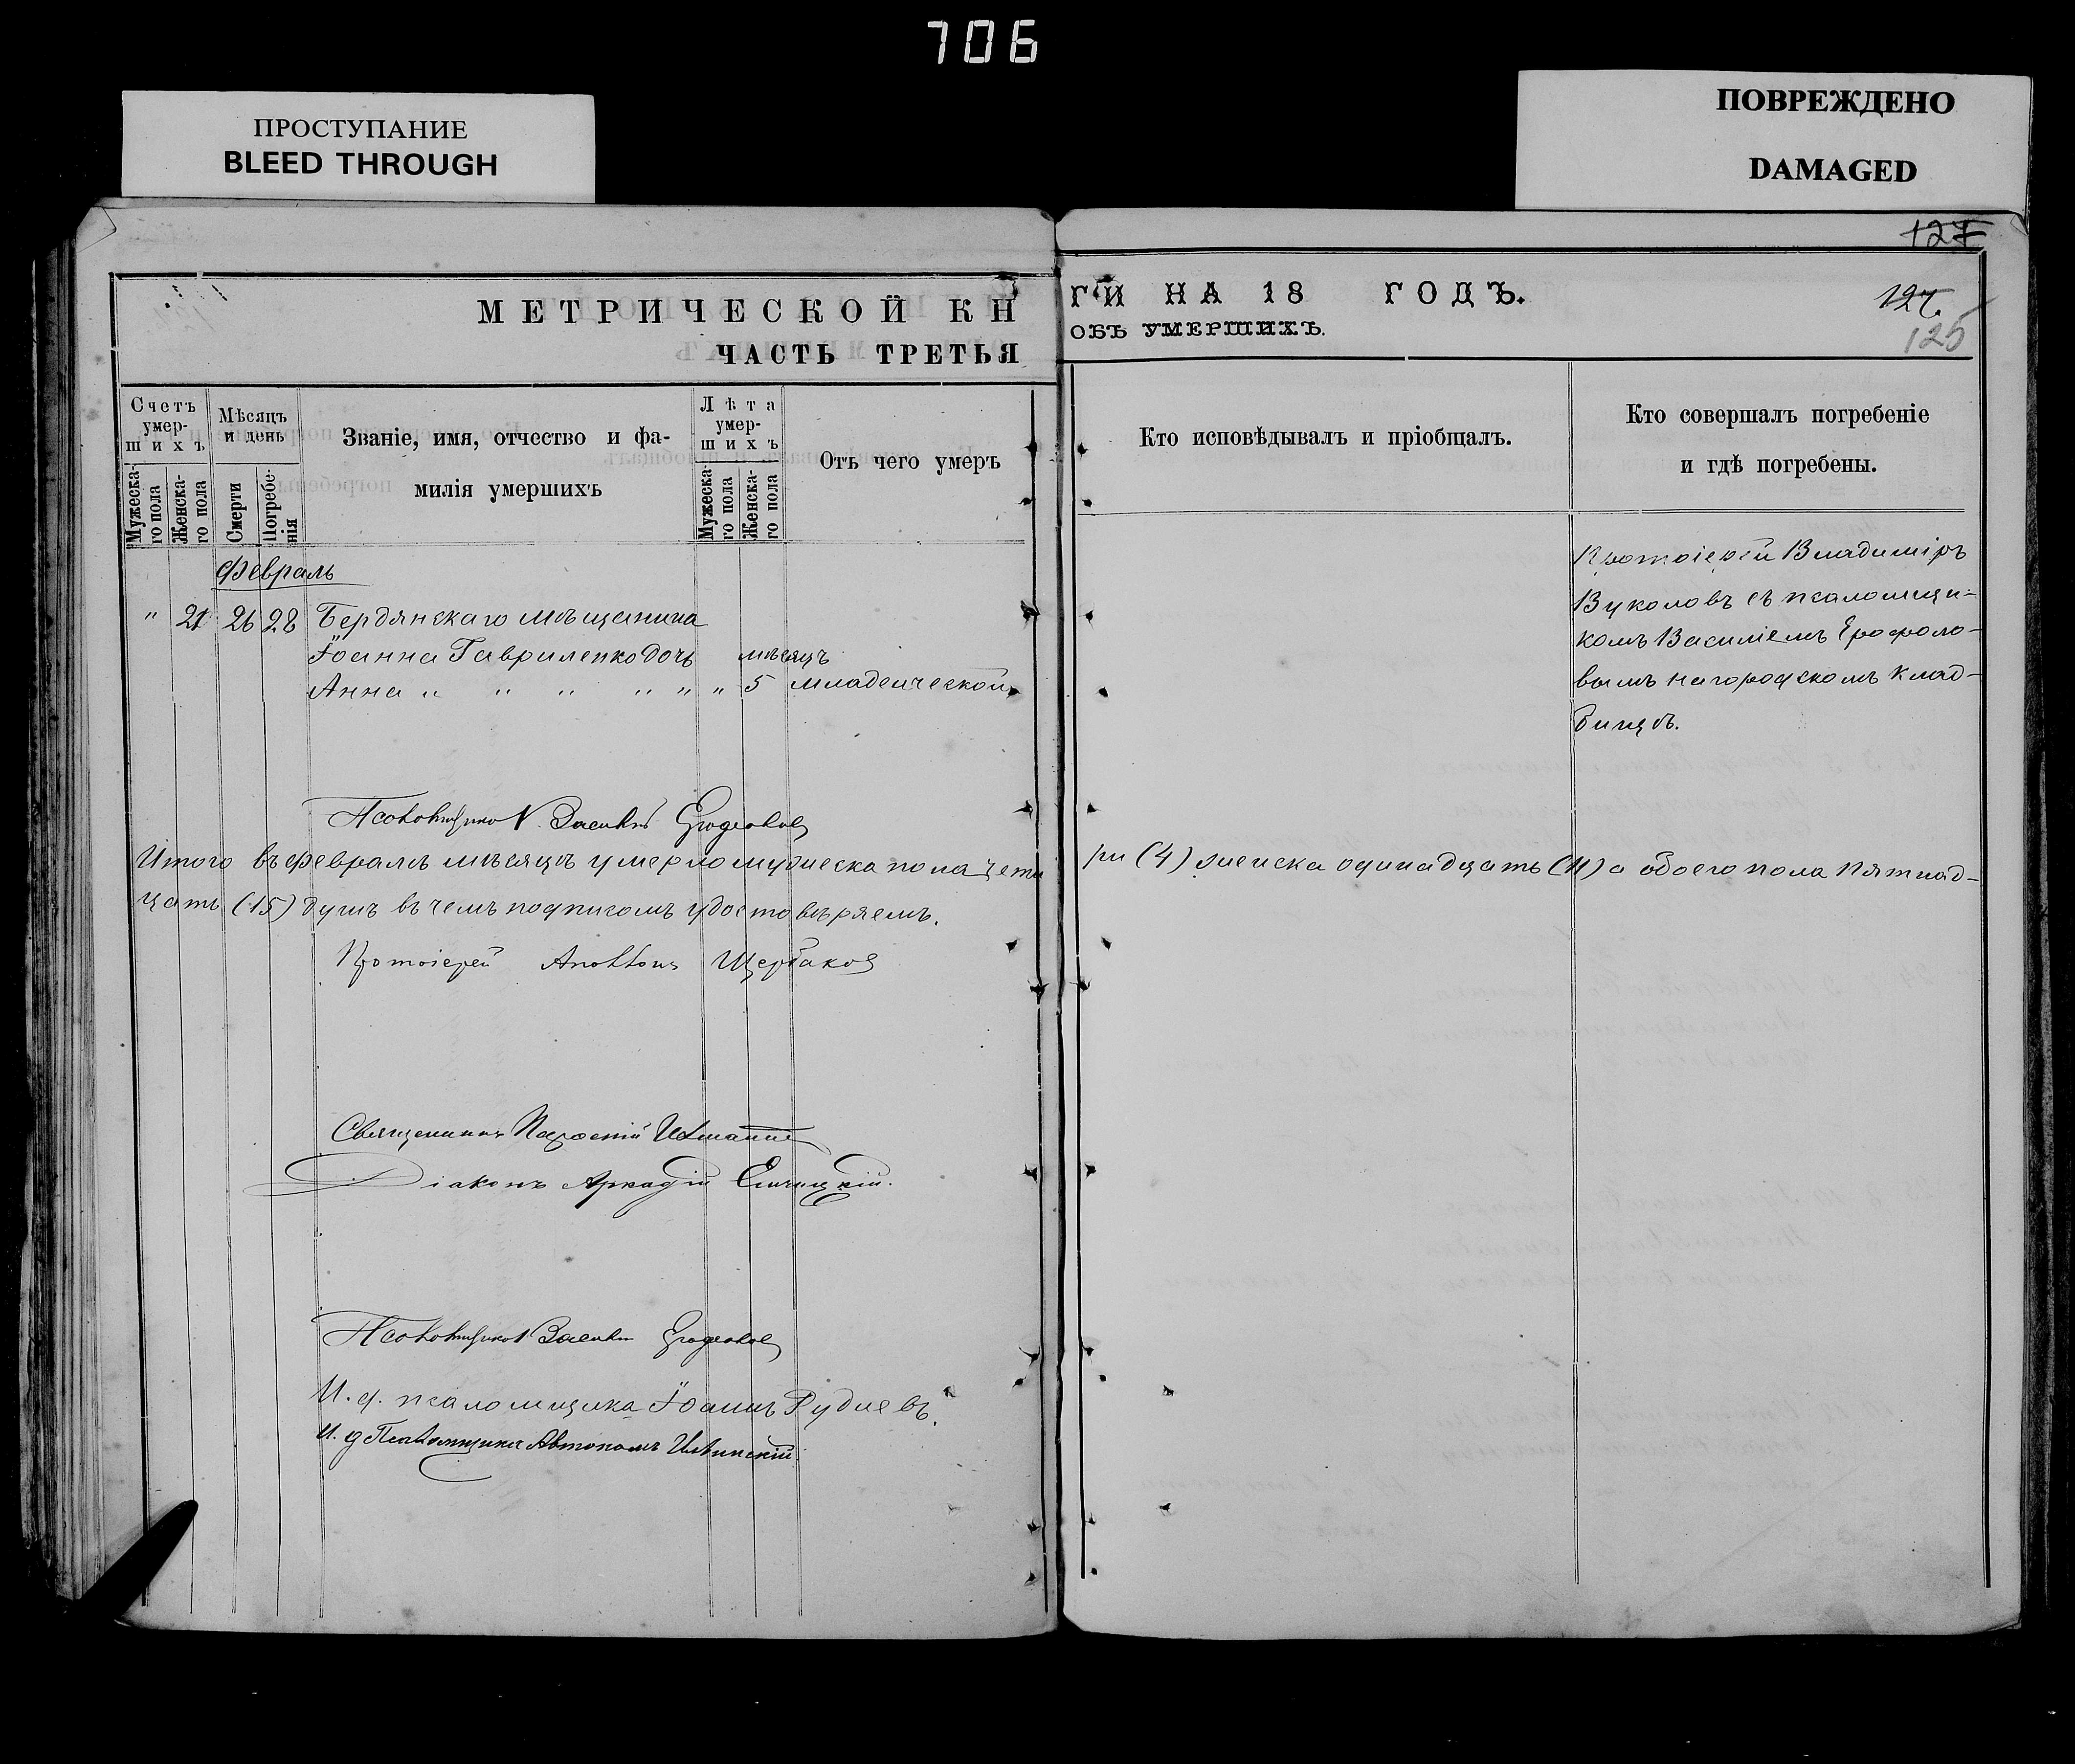 706
ПРОСТУПАНИЕ
BLEED THROUGH
ПОВРЕЖДЕНО
DAMAGED
127
МЕТРИЧЕСКОЙ КН
ЧАСТЬ ТРЕТЬЯ
ГИ НА 18 ГОДЪ.
ОБЪ УМЕРШИХЪ.
127.
125
Счетъ умер-
шихъ
Мужеска-
го пола
Женска-
го пола
Мѣсяцъ
и день
Смерти
Погребе-
нія
Званіе, имя, отчество и фа-
милія умершихъ
Лѣта
умер-
шихъ
Мужеска-
го пола
Женска-
го пола
Отъ чего умеръ
Кто исповѣдывалъ и пріобщалъ.
Кто совершалъ погребеніе
и гдѣ погребены.
Февраль
" 21 26 28 Бердянскаго мѣщанина
Іоанна Гавриленко дочь мѣсяцъ
Анна " " " " " " 5 младенческой
Протоіерей Владиміръ
Вуколовъ съ псаломщи-
комъ Василіемъ
вымъ на городскомъ клад-
бищѣ.
Псаломщикъ Василій
Итого въ февралѣ мѣсяцѣ умерло мужеска пола четы
ри (4) женска одинадцать (11) а обоего пола пятнад-
цать (15) душъ въ чемъ подписомъ удостовѣряемъ.
Протоіерей Щербаковъ
Священникъ
Діаконъ Аркадій
Псаломщикъ Василій
И. д. псаломщика Іоаннъ Рудневъ.
И. д Псаломщика Автономъ Ильинскій